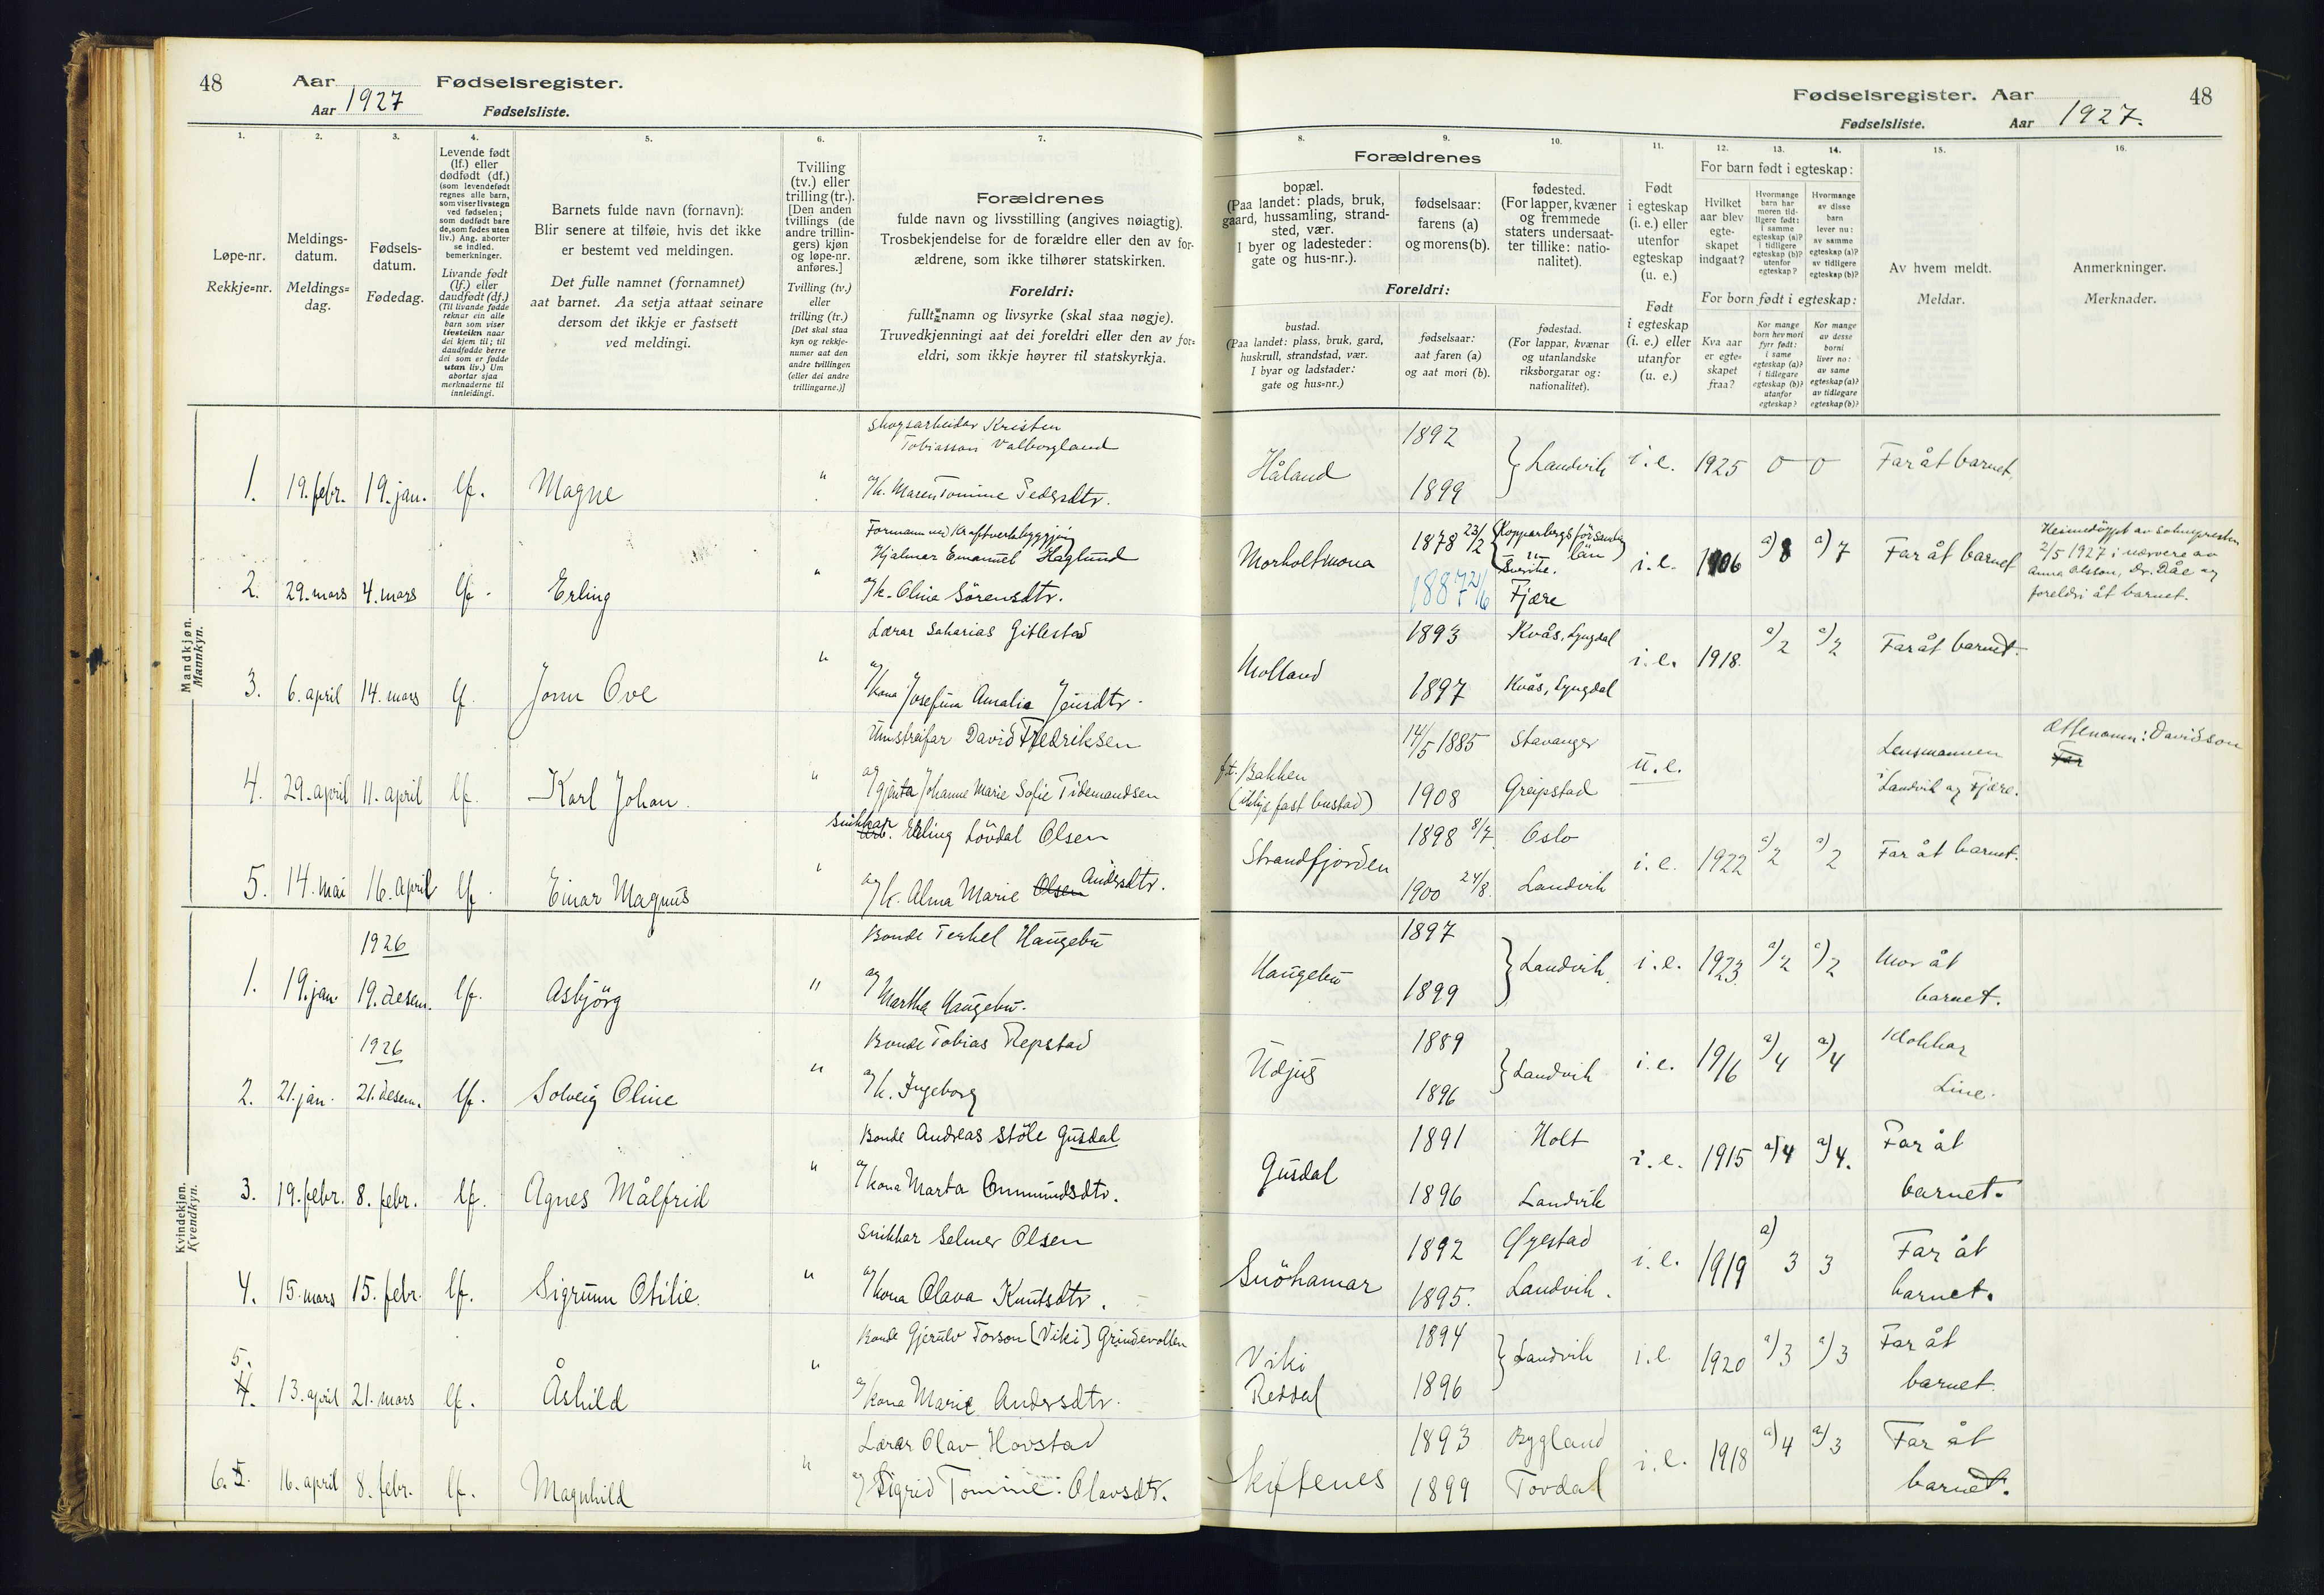 48 Aar Fødselsregister.
Aar 1927 Fødselsliste.
Fødselsregister. Aar 48
Fødselsliste. Aar 1927.
1. 2. 3. 4. 5. 6. 7.
Løpe-nr.
Rekkje=nr.
Meldings-
datum.
Meldings=
dag.
Fødsels-
datum.
Fødedag.
Levende født
(lf.) eller
dødfødt (df.)
(som levendefødt
regnes alle barn,
som viser livstegn
ved fødselen;
som dødfødt bare
de, som fødes uten
liv.) Ang. aborter
se indled.
bemerkninger.
Livande født
(lf.) eller
daudfødt (df.)
(Til livande fødde
reknar ein alle
barn som viser
livsteikn naar
dei kjem til; til
daudfødde berre
dei som er fødde
utan liv.) Um
abortar sjaa
merknaderne til
innleidingi.
Barnets fulde navn (fornavn):
Blir senere at tilføie, hvis det ikke
er bestemt ved meldingen.
Det fulle namnet (fornamnet)
aat barnet. Aa setja attaat seinare
dersom det ikkje er fastsett
ved meldingi.
Tvilling
(tv.) eller
trilling (tr.).
[Den anden
tvillings (de
andre trillin-
gers) kjøn
og løpe-nr.
anføres.]
Tvilling (tv.)
eller
trilling (tr.)
[Det skal staa
kyn og rekkje-
numer aat den
andre tvillingen
(eller dei andre
trillingarne.)]
Forældrenes
fulde navn og livsstilling (angives nøiagtig).
Trosbekjendelse for de forældre eller den av for-
ældrene, som ikke tilhører statskirken.
Foreldri:
fullt namn og livsyrke (skal staa nøgje).
Truvedkjenningi aat dei foreldri eller den av for=
eldri, som ikkje høyrer til statskyrkja.
8. 9. 10. 11. 12. 13. 14. 15. 16.
Forældrenes
bopæl.
(Paa landet: plads, bruk,
gaard, hussamling, strand-
sted, vær.
I byer og ladesteder:
gate og hus-nr.).
fødselsaar:
farens (a)
og morens (b).
fødested.
(For lapper, kvæner
og fremmede
staters undersaat-
ter tillike: natio-
nalitet).
Foreldri:
bustad.
(Paa landet: plass, bruk, gard,
huskrull, strandstad, vær.
I byar og ladstader:
gate og hus=nr.)
fødselsaar:
aat faren (a)
og aat mori (b).
fødestad.
(For lappar, kvænar
og utanlandske
riksborgarar og:
nationalitet).
Født
i egteskap
(i. e.) eller
utenfor
egteskap
(u. e.)
Født
i egteskap
(i. e.) eller
utanfor
(u. e.)
For barn født i egteskap:
Hvilket
aar blev
egte-
skapet
indgaat?
Hvormange
barn har
moren tid-
ligere født:
i samme
egteskap (a)?
i tidligere
egteskap (b)?
utenfor
egteskap?
Hvormange
av disse
barn
lever nu:
av samme
egteskap (a)?
av tidligere
egteskap (b)?
For born født i egteskap:
Kva aar
er egte-
skapet
fraa?
Kor mange
born hev mori
fyrr født:
i same
egteskap (a)?
i tidlegare
egteskap (b)?
utanfor
egteskap?
Kor mange
av desse
borni
liver no:
av same
egteskap (a)?
av tidlegare
egteskap (b)?
Av hvem meldt.
Meldar.
Anmerkninger.
Merknader.
Mandkjøn.
Mannkyn.
Skogsarbeidar Kristen
Tobiassen Valborgland
1. 19. febr. 19. jan. lf. Magne " og k. Maren Tomine Pedersdtr.
Håland 1892 1899 } Landvik i. e. 1925 0 0 Far åt barnet.
Formann ved Kraftverkbyggjing
Hjalmar Emanuel Haglund
2. 29. mars 4. mars lf. Erling " og k. Oline Sörensdtr.
Morholtmona 1878 23/2 Kopparbergs län Sverike.
1887 Fjære i. e. 1906 a) 8 a) 7 Far åt barnet
Heimedöypt av soknepresten
2/5 1927 i nærvere av
Anna Olsson, Dr. Dåe og
foreldri åt barnet.
Lærar Sakarias Gitlestad
3. 6. april 14. mars lf. Jonn Ove " og kona Josefine Amalie Jensdtr.
Molland 1893 Kvås, Lyngdal
1897 Kvås, Lyngdal i. e. 1918. a) 2 a) 2 Far åt barnet.
Umstreifar David Fredriksen
4. 29. april 11. april lf. Karl Johan. " og gjenta Johanne Marie Sofie Tidemandsen
f.t. Bakken
(ikkje fast bustad) 14/5 1885 Stavanger
1908 Greipstad u. e. Lensmannen
i Landvik og Fjære.
Ættenamn: Davidson
Far
Snikkar Erling Lövdal Olsen
5. 14. mai 16. april lf. Einar Magnus " og k. Alma Marie Olsen Andersdtr.
Strandfjorden 1898 8/7. Oslo
1900 24/8. Landvik i. e. 1922 a) 2 a) 2 Far åt barnet.
Kvindekjøn.
Kvendkyn.
1926 Bonde Terkel Haugebu
1. 19. jan. 19. desem. lf. Asbjörg " og Martha Haugebu.
Haugebu 1897 1899 } Landvik i. e. 1923. a) 2 a) 2 Mor åt
barnet.
1926 Bonde Tobias Repstad
2. 21. jan. 21. desem. lf. Solveig Oline " og k. Ingeborg
Udjus 1889 1896 } Landvik i. e. 1916 a) 4 a) 4 Klokkar
Line.
Bonde Andreas Stöle Gusdal
3. 19. febr. 8. febr. lf. Agnes Målfrid " og kona Marta Ommundsdtr.
Gusdal 1891 Holt
1896 Landvik i. e. 1915 a) 4 a) 4. Far åt
barnet.
Snikkar Selmer Olsen
4. 15. mars 15. febr. lf. Sigrunn Otilie. " og kona Olava Knutsdtr.
Snöhamar 1892 Øyestad
1895. Landvik. i. e. 1919 a) 3 3 Far åt
barnet.
Bonde Gjerulv Torson [Viki] Grindevollen
5. 4. 13. april 21. mars lf. Åshild " og kona Marie Andersdtr.
Viki
Reddal 1894 1896 } Landvik i. e. 1920 a) 3 a) 3 Far åt
barnet.
Lærar Olav Hovstad
6. 5. 16. april 8. febr. lf. Magnhild " og Sigrid Tomine Olavsdtr.
Skiftenes 1893 Bygland
1899 Tovdal i. e. 1918 a) 4 a) 3 Far åt
barnet.